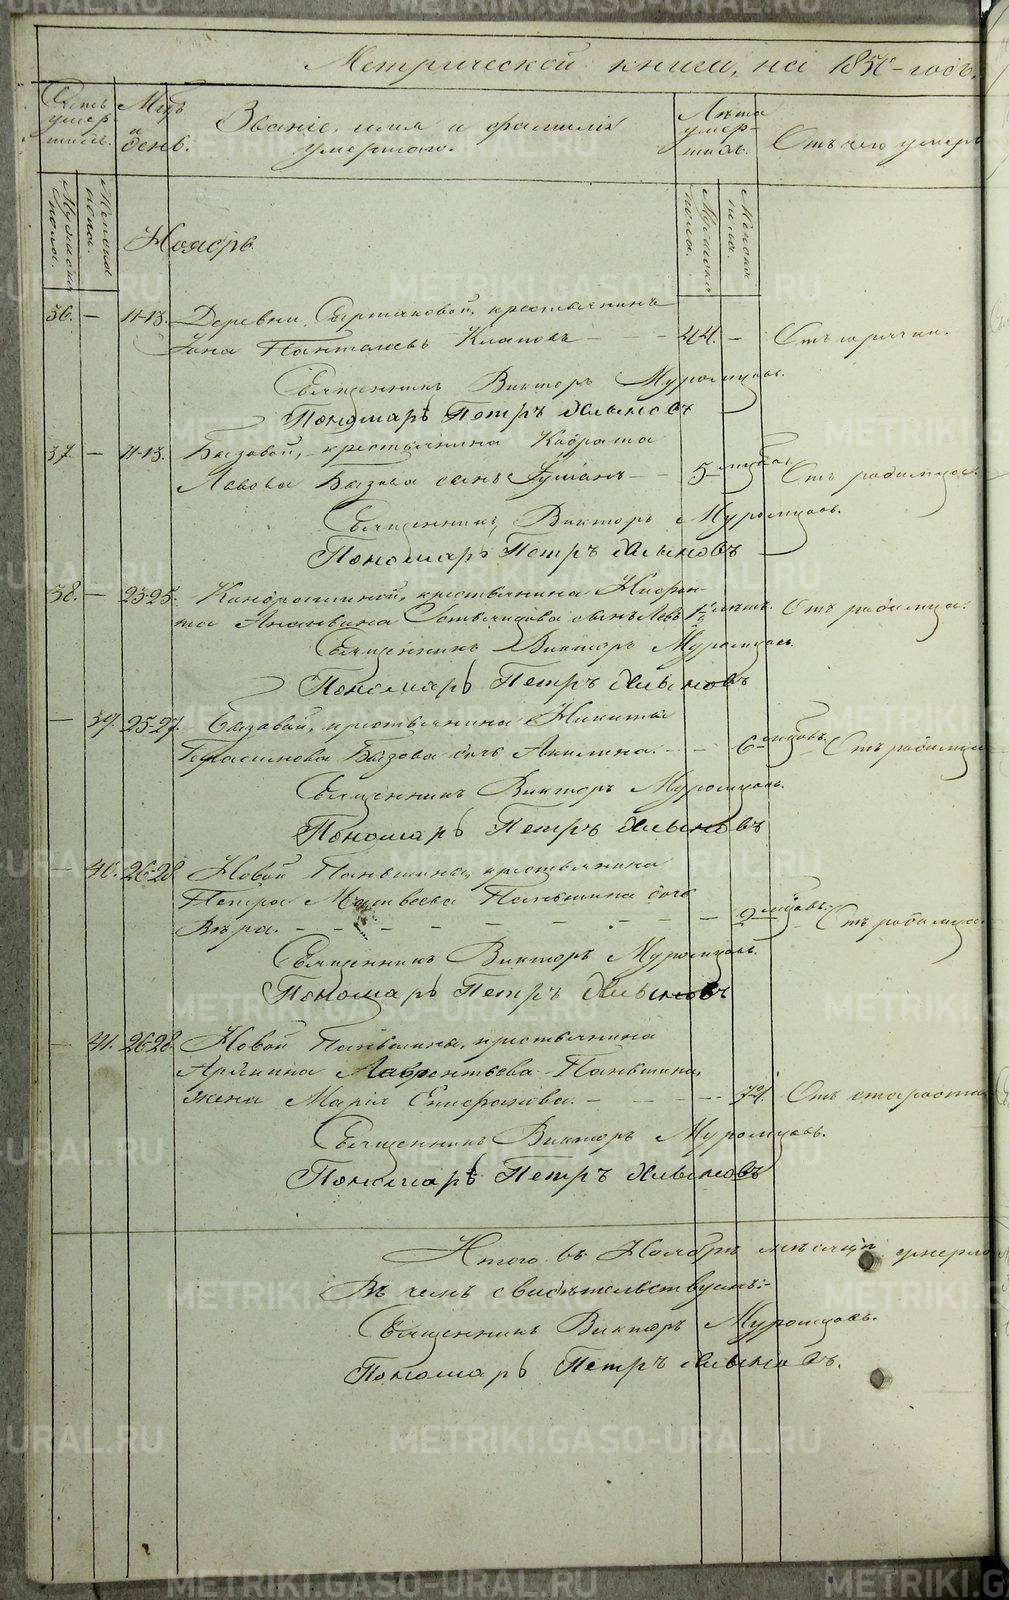 Метрической книги, на 185 годъ.
Счетъ умер-
шихъ.
Мѣс. и день.
Званіе, имя и фамилія
умершаго.
Лѣта
умер-
шихъ.
Отъ чего умеръ
Мужеска пола.
Женска пола.
Мужеска пола.
Женска пола.
Ноябрь
36. — 11-13. Деревни крестьянинъ
Пантелѣевъ — — — 44. — Отъ горячки.
Священникъ Викторъ Муромцовъ.
Пономарь Петръ
37. — 11-13. Бызовой, крестьянина Кодрата
Львова Бызова сынъ — 5 мѣсяц. Отъ родимца.
Священникъ Викторъ Муромцовъ.
Пономарь Петръ
38. — 23-25. крестьянина Нифон-
та Ананьина сынъ Левъ 1½ лѣтъ. Отъ родимца.
Священникъ Викторъ Муромцовъ.
Пономарь Петръ
— 39. 25-27. Бызовой, крестьянина Никиты
Герасимова Бызова дочь Акилина. — — 6 мѣсяцовъ. Отъ родимца
Священникъ Викторъ Муромцовъ.
Пономарь Петръ
— 40. 26-28 Новой Паньшины, крестьянина
Петра Матвѣева Паньшина дочь
Вѣра. — — — — — — — — 2 мѣсяцовъ. Отъ родимца.
Священникъ Викторъ Муромцовъ.
Пономарь Петръ
— 41. 26-28. Новой Паньшины, крестьянина
Лаврентьева Паньшина,
жена Марія Епифанова. — — — — 74. Отъ старости
Священникъ Викторъ Муромцовъ.
Пономарь Петръ
Итого въ Ноябрѣ мѣсяцѣ умерло
Въ чемъ свидѣтельствуемъ:-
Священникъ Викторъ Муромцовъ.
Пономарь Петръ
METRIKI.GASO-URAL.RU